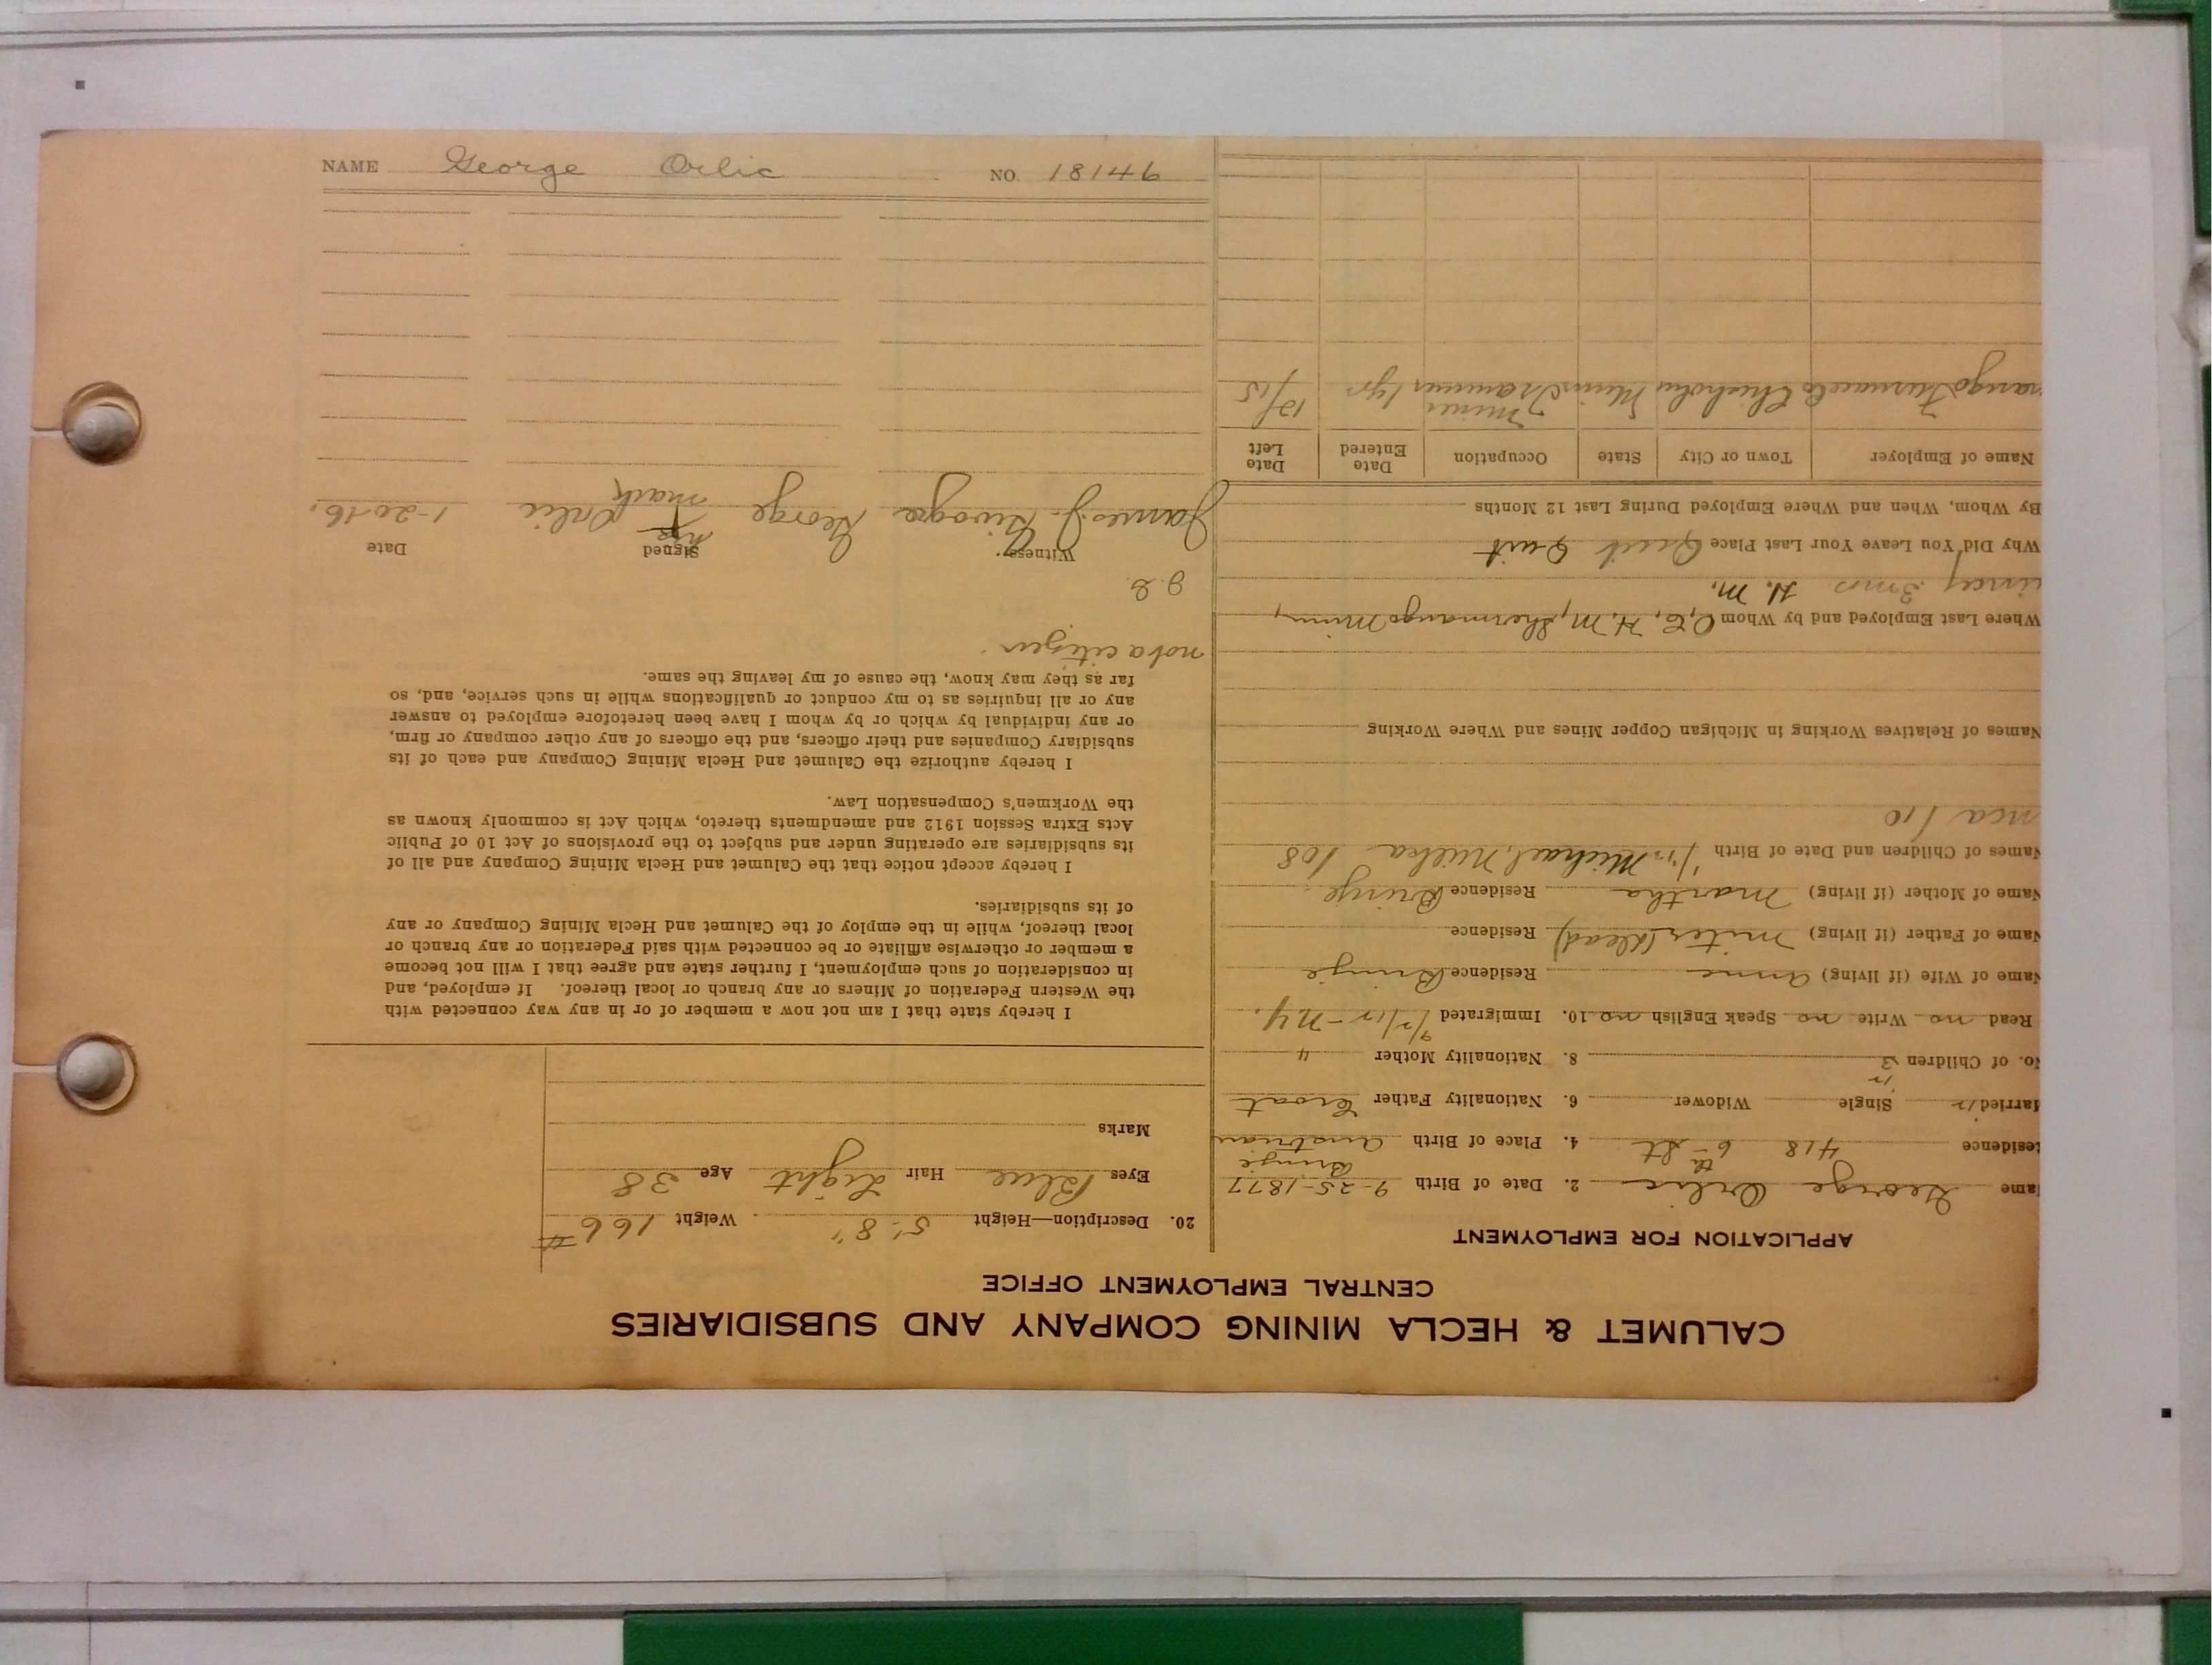 CALUMET & HECLA MINING COMPANY AND SUBSIDIARIES
CENTRAL EMPLOYMENT OFFICE
APPLICATION FOR EMPLOYMENT
ame George Orlic 2. Date of Birth 9-25-1877
esidence 418 6th St 4. Place of Birth Brinje Austrian
arried Single Widower 6. Nationality Father Croat
o. of Children 3 8. Nationality Mother "
Read no Write no Speak English no 10. Immigrated - N.Y.
Name of Wife (if living) Anne Residence Brinje
Name of Father (if living) (dead) Residence
Name of Mother (if living) Martha Residence Brinje
Names of Children and Date of Birth Michael, Milka /08
/10
Names of Relatives Working in Michigan Copper Mines and Where Working
Where Last Employed and by Whom
3 mos H. M.
Why Did You Leave Your Last Place Quit Quit
By Whom, When and Where Employed During Last 12 Months
Name of Employer Town or City State Occupation Date Entered Date Left
Chisholm Minn Miner Trammer 1 yr /15
20. Description—Height 5' 8" Weight 166 #
Eyes Blue Hair Light Age 38
Marks
I hereby state that I am not now a member of or in any way connected with
the Western Federation of Miners or any branch or local thereof. If employed, and
in consideration of such employment, I further state and agree that I will not become
a member or otherwise affiliate or be connected with said Federation or any branch or
local thereof, while in the employ of the Calumet and Hecla Mining Company or any
of its subsidiaries.
I hereby accept notice that the Calumet and Hecla Mining Company and all of
its subsidiaries are operating under and subject to the provisions of Act 10 of Public
Acts Extra Session 1912 and amendments thereto, which Act is commonly known as
the Workmen's Compensation Law.
I hereby authorize the Calumet and Hecla Mining Company and each of its
subsidiary Companies and their officers, and the officers of any other company or firm,
or any individual by which or by whom I have been heretofore employed to answer
any or all inquiries as to my conduct or qualifications while in such service, and, so
far as they may know, the cause of my leaving the same.
not a citizen
Witness Signed Date
James J. George his mark Orlic 1-20-16.
NAME George Orlic NO. 18146